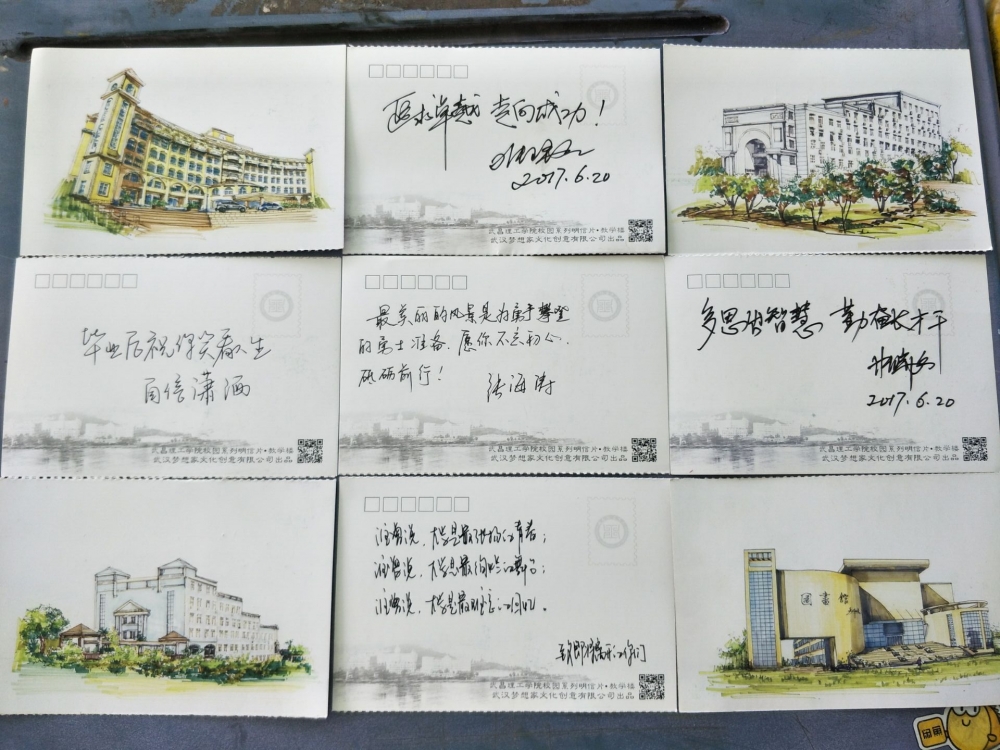 追求卓越 走向成功!
2017.6.20
武昌理工学院校园系列明信片·教学楼
武汉梦想家文化创意有限公司出品
毕业后祝你笑看人生
自信潇洒
武昌理工学院校园系列明信片·教学楼
武汉梦想家文化创意有限公司出品
最美丽的风景是为勇于攀登
的勇士准备,愿你不忘初心、
砥砺前行!
张海涛
武昌理工学院校园系列明信片·教学楼
武汉梦想家文化创意有限公司出品
多思出智慧 勤奋长才干
2017.6.20
武昌理工学院校园系列明信片·教学楼
武汉梦想家文化创意有限公司出品
谁曾说,大学是最张扬的青春;
谁曾说,大学是最绚烂的舞台;
谁曾说,大学是最难忘的回忆。
武昌理工学院校园系列明信片·教学楼
武汉梦想家文化创意有限公司出品
图书馆
闲鱼